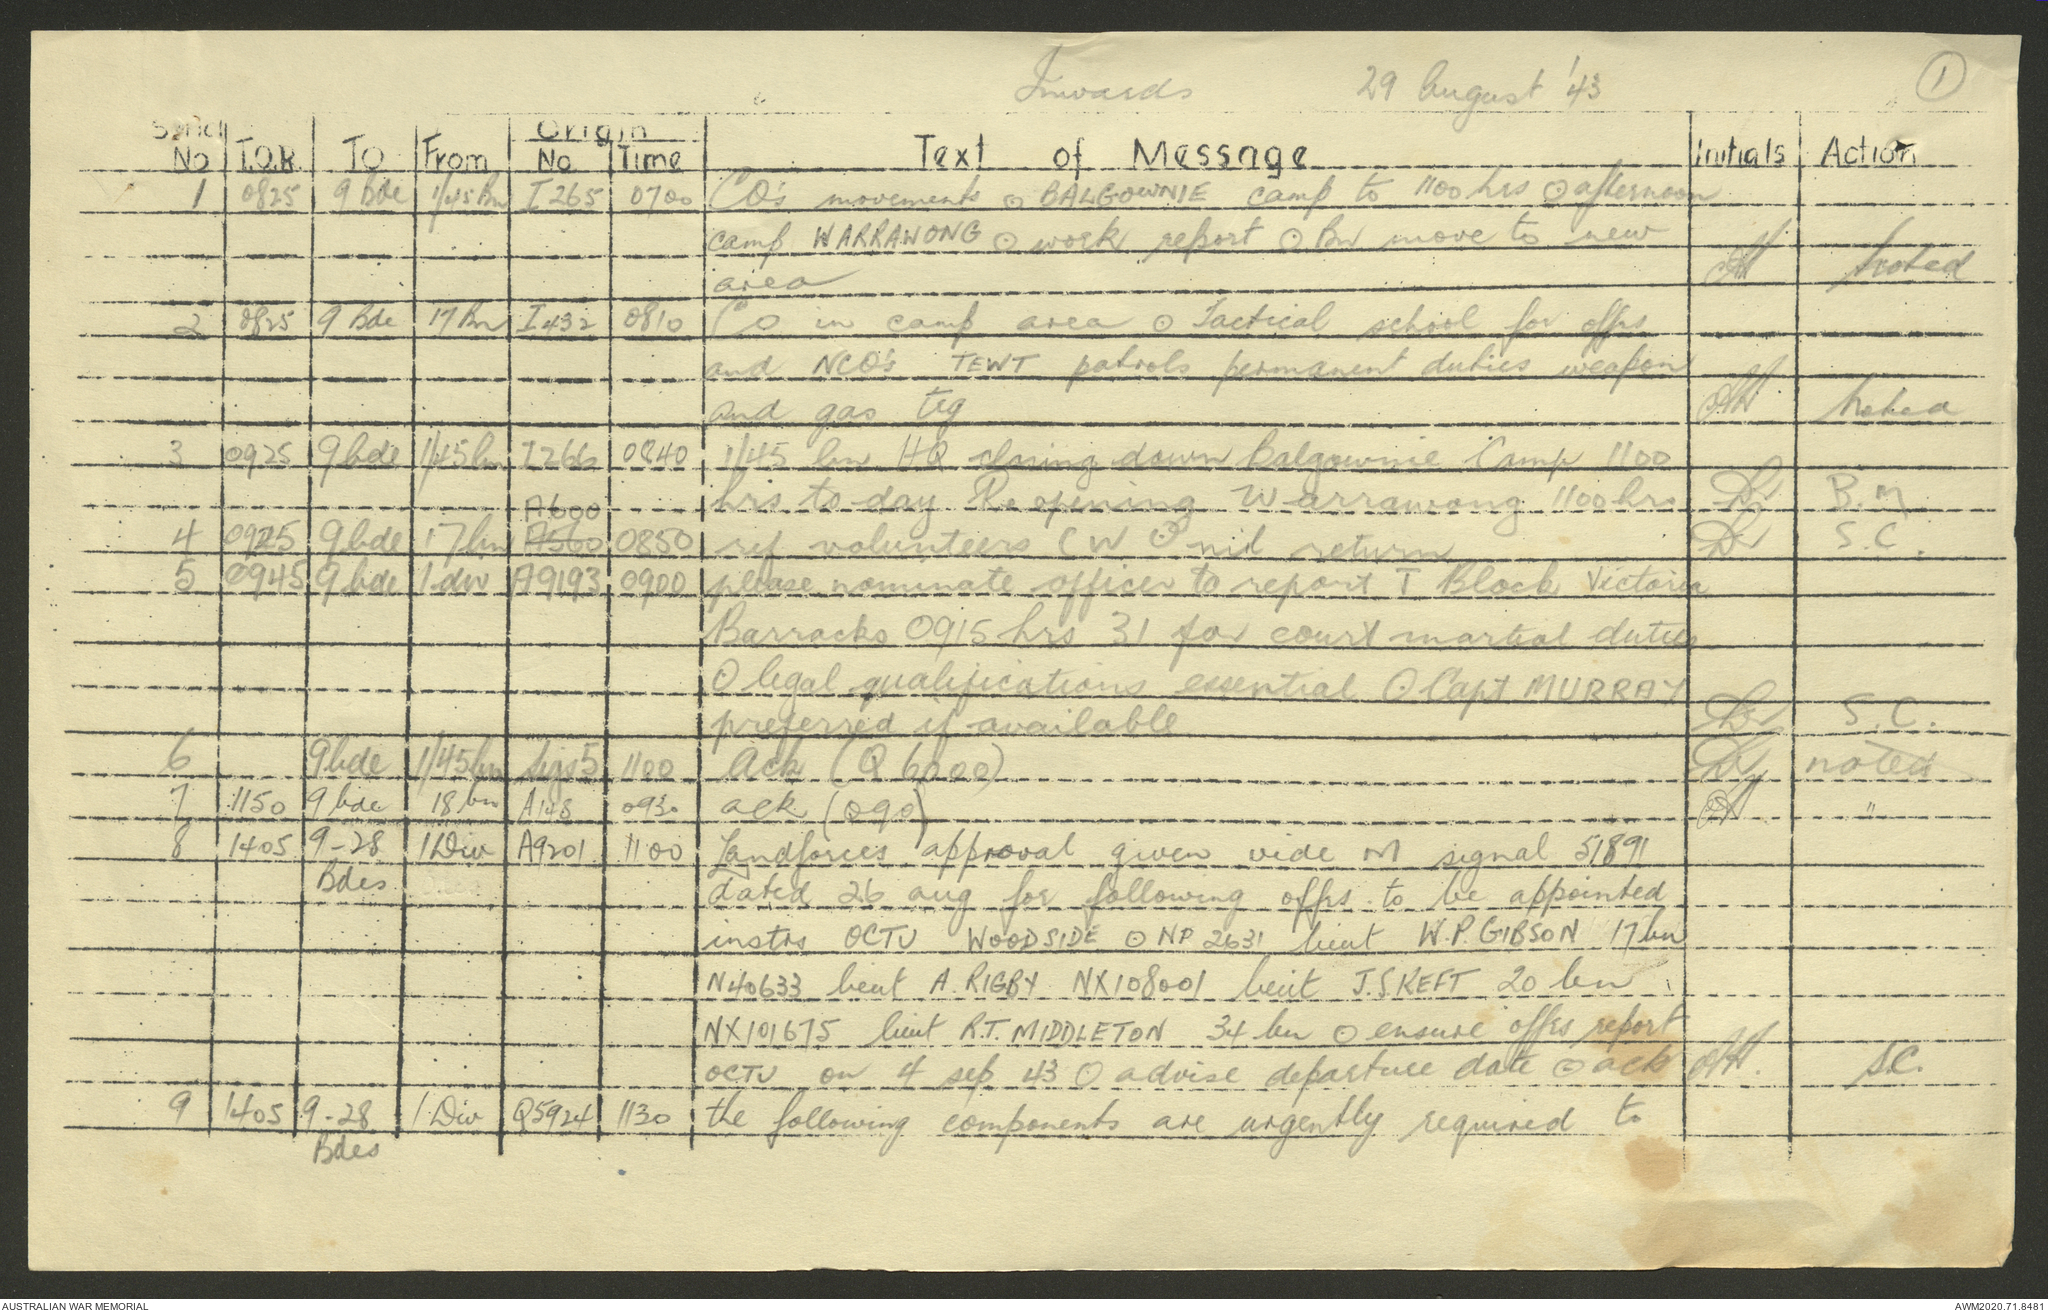 Inwards 29 August '43 1
Serial No T.O.R. TO From Origin No Time Text of Message Initials Action
1 0825 9 Bde 1/45 Bn I265 0700 CO's movements ⊙ BALGOWNIE camp to 1100 hrs ⊙ afternoon
camp WARRAWONG ⊙ work report ⊙ Bn move to new
area noted
2 0825 9 Bde 17 Bn I432 0810 CO in camp area ⊙ Tactical school for offrs
and NCO's TEWT patrols permanent duties weapon
and gas trg noted
3 0925 9 bde 1/45 bn I266 0840 1/45 bn HQ closing down Balgownie Camp 1100
hrs to-day Re opening Warrawong 1100 hrs B.M
A600
4 0925 9 bde 17 bn A560 0850 ref volunteers CW ⊙ nil return S.C.
5 0945 9 bde 1 div A9193 0900 please nominate officer to report T Block Victoria
Barracks 0915 hrs 31 for court martial duties
⊙ legal qualifications essential ⊙ Capt MURRAY
preferred if available S.C.
6 9 bde 1/45 bn Sigs 5 1100 Ack (Q 6000) noted
7 1150 9 bde 18 bn A148 0930 ack (Q90) "
8 1405 9-28 1 Div A9201 1100 Landforces approval given vide M signal 51891
Bdes dated 26 aug for following offrs to be appointed
instrs OCTU WOODSIDE ⊙ NP 2631 lieut W.P. GIBSON 17 bn
N40633 lieut A. RIGBY NX108001 lieut J. SKEFT 20 bn
NX101675 lieut R.T. MIDDLETON 34 bn ⊙ ensure offrs report
OCTU on 4 sep 43 ⊙ advise departure date ⊙ ack SC.
9 1405 9-28 1 Div Q5924 1130 the following components are urgently required to
Bdes
AUSTRALIAN WAR MEMORIAL AWM2020.71.8481